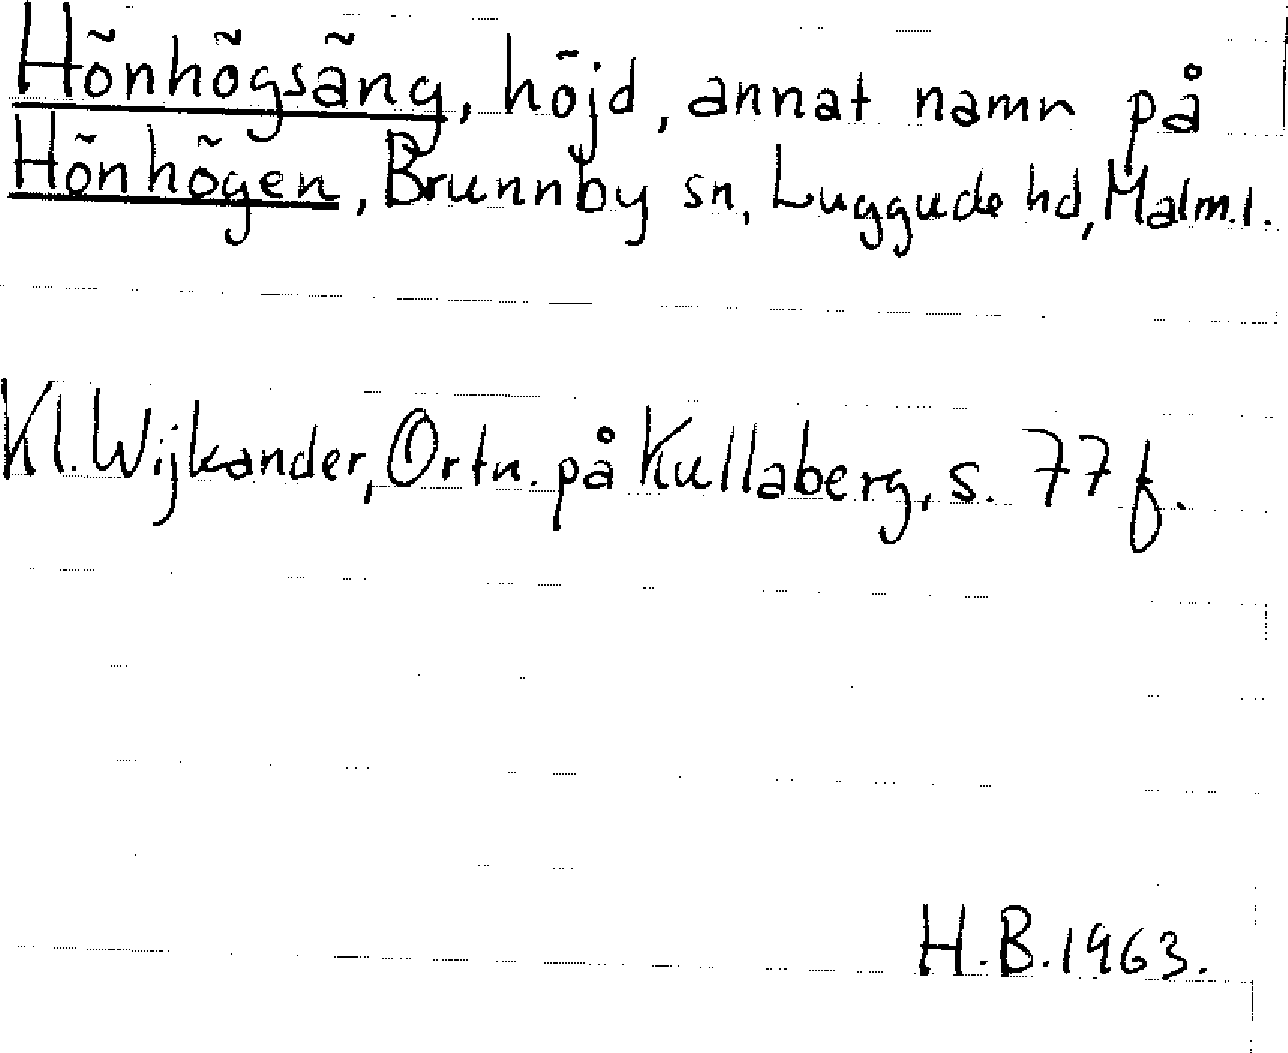 Hönhögsäng, höjd, annat namn på
Hönhögen, Brunnby sn, Luggude hd, Malm.l.
Kl. Wijkander, Ortn. på Kullaberg, s. 77 f.
H.B. 1963.